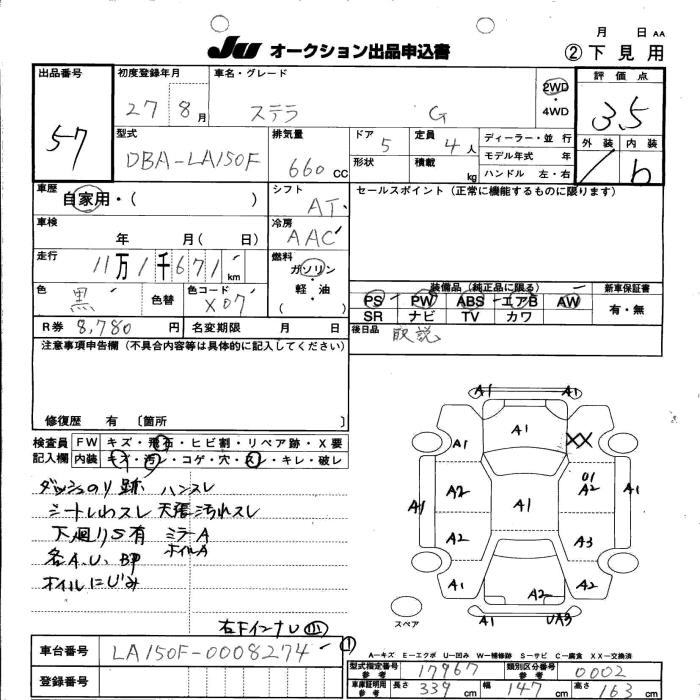 月 日 AA
JU オークション出品申込書 ②下見用
出品番号 初度登録年月 車名・グレード 評価点
57 27 8月 ステラ G 2WD・4WD 3.5
型式 排気量 ドア 定員 ディーラー・並行 外装 内装
DBA-LA150F 660cc 5 4人 モデル年式 年 b
形状 積載 kg ハンドル 左・右
車歴 自家用・( ) シフト AT セールスポイント(正常に機能するものに限ります)
車検 年 月( 日) 冷房 AAC
走行 11万1千671km 燃料 ガソリン・軽・油 ( )
色 黒 色替 色コード X07
装備品(純正品に限る) 新車保証書
PS PW ABS エアB AW 有・無
SR ナビ TV カワ
R券 8,780円 名変期限 月 日 後日品 取説
注意事項申告欄(不具合内容等は具体的に記入してください)
修復歴 有〔箇所 〕
検査員記入欄 FW キズ・飛石・ヒビ割・リペア跡・X要
内装 キズ・汚レ・コゲ・穴・スレ・キレ・破レ
ダッシュのり跡 ハンスレ
シートしわスレ 天張汚れスレ
下廻りS有 ミラーA
ホイルA
各A.U.BP
ホイルにじみ
右下インナー
A1 A1
A1 A1 XX
A1 A2 A1 U1 A2 A1
A2 A3
A1 A2 A1
スペア A1 UA3
A-キズ E-エクボ U-凹み W-補修跡 S-サビ C-腐食 XX-交換済
車台番号 LA150F-0008274
登録番号
型式指定番号 参考 17967 類別区分番号 参考 0002
車庫証明用 参考 長さ 339cm 幅 147cm 高さ 163cm